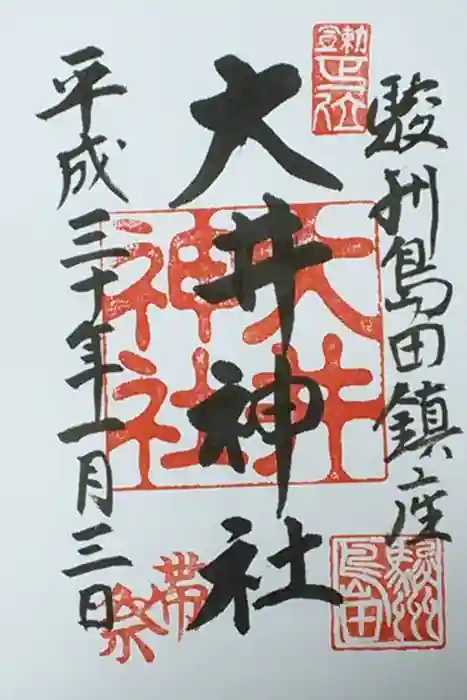 駿州島田鎮座
大井神社
平成三十年一月三日
大井
神社
駿州
島田
帯祭